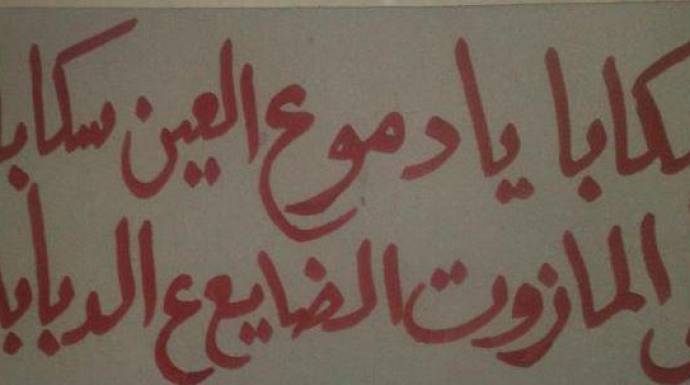 سكابا يا دموع العين سكابا
المازوت الضايع ع الدبابا